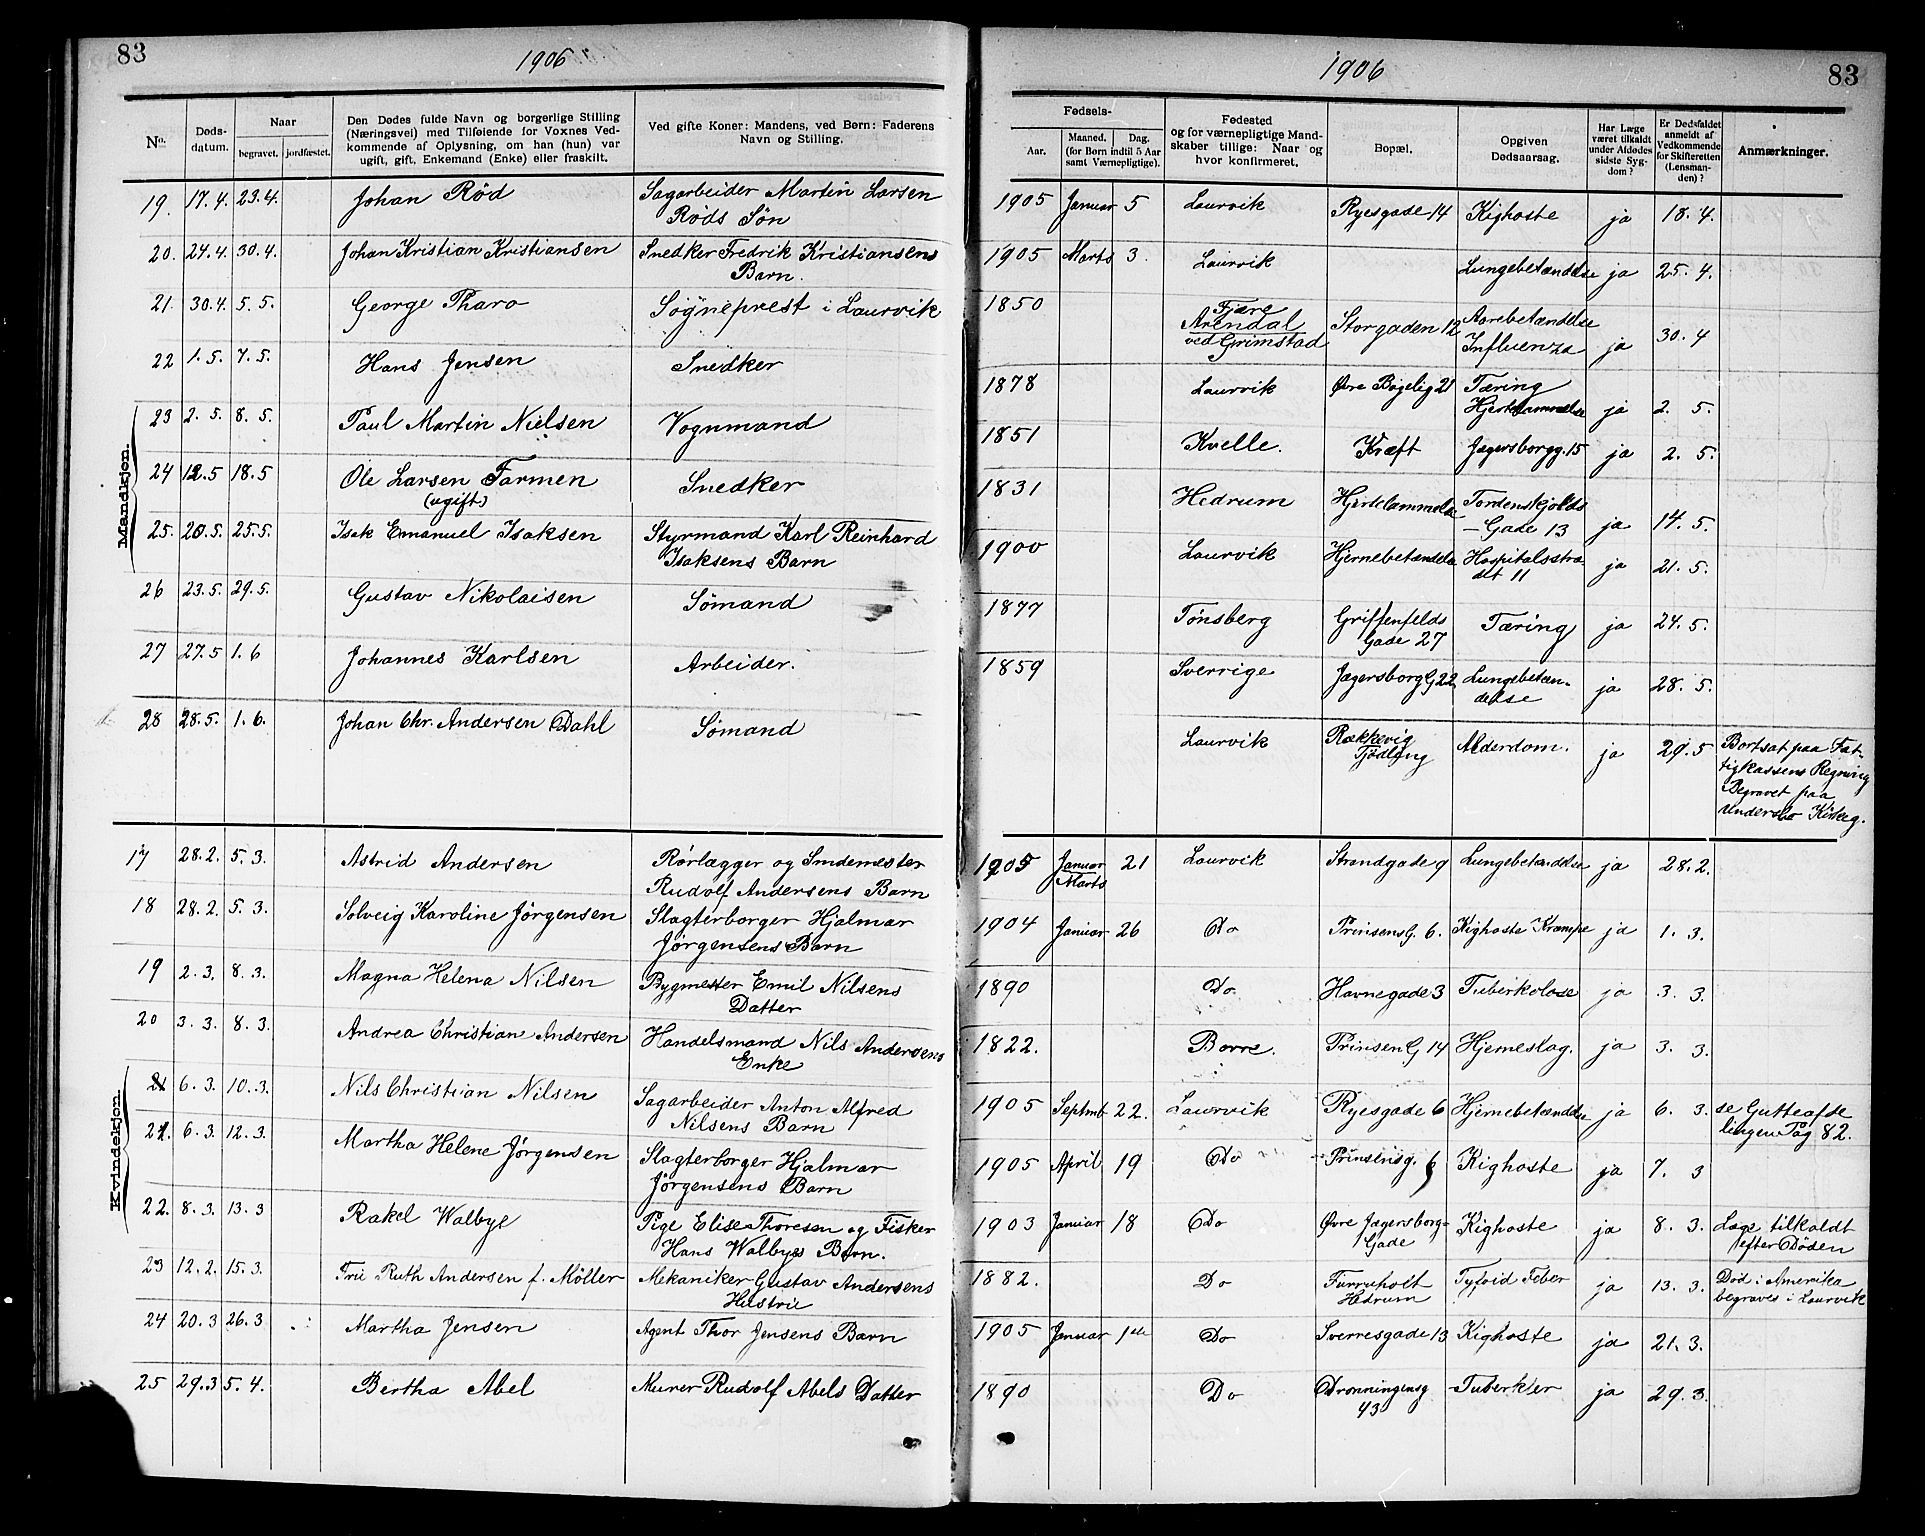 83
1906
No.
Døds-
datum.
Naar
begravet.
jordfæstet.
Den Dødes fulde Navn og borgerlige Stilling
(Næringsvei) med Tilføiende for Voxnes Ved-
kommende af Oplysning, om han (hun) var
ugift, gift, Enkemand (Enke) eller fraskilt.
Ved gifte Koner: Mandens, ved Børn: Faderens
Navn og Stilling.
Mandkjøn.
19. 17. 4. 23. 4. Johan Rød Sagarbeider Martin Larsen
Røds Søn
20. 24. 4. 30. 4. Johan Kristian Kristiansen Snedker Fredrik Kristiansens
Barn.
21. 30. 4. 5. 5. George Tharo Sogneprest i Laurvik
22 1. 5. 7. 5. Hans Jensen Snedker
23 2. 5. 8. 5. Paul Martin Nielsen Vognmand
24 12. 5 18. 5 Ole Larsen Farmen Snedker
(ugift)
25. 20. 5. 25. 5. Isak Emanuel Isaksen Styrmand Karl Reinhard
Isaksens Barn
26 23. 5. 29. 5. Gustav Nikolaisen Sømand
27 27. 5 1. 6 Johannes Karlsen Arbeider.
28 28. 5. 1. 6. Johan Chr. Andersen Dahl Sømand
Kvindekjøn.
17 28. 2. 5. 3. Astrid Andersen Rørlægger og Smdemester
Rudolf Andersens Barn
18 28. 2. 5. 3. Solveig Karoline Jørgensen Slagterborger Hjalmar
Jørgensens Barn
19 2. 3. 8. 3. Magna Helena Nilsen Bygmester Emil Nilsens
Datter
20 3. 3. 8. 3. Andrea Christian Andersen Handelsmand Nils Andersens
Enke
21 6. 3. 10. 3. Nils Christian Nilsen Sagarbeider Anton Alfred
Nilsens Barn
21. 6. 3. 12. 3. Martha Helene Jørgensen Slagterborger Hjalmar
Jørgensens Barn
22. 8. 3. 13. 3 Rakel Walbye Pige Elise Thoresen og Fisker
Hans Walbyes Barn.
23 12. 2. 15. 3. Frü Ruth Andersen f. Möller Mekaniker Gustav Andersens
Hustru
24 20. 3 26. 3 Martha Jensen Agent Thor Jensens Barn
25 29. 3 5. 4. Bertha Abel Murer Rudolf Abels Datter
1906
83
Fødsels-
Aar.
Maaned. Dag.
(for Børn indtil 5 Aar
samt Værnepligtige).
Fødested
og for værnepligtige Mand-
skaber tillige: Naar og
hvor konfirmeret.
Bopæl.
Opgiven
Dødsaarsag.
Har Læge
været tilkaldt
under Afdødes
sidste Syg-
dom?
Er Dødsfaldet
anmeldt af
Vedkommende
for Skifteretten
(Lensman-
den)?
Anmærkninger.
1905 Januar 5 Laurvik Ryesgade 14 Kighoste ja 18. 4.
1905 Marts 3. Laurvik Lungebetændelse ja 25. 4.
1850 Fjære
Arendal
ved Grimstad Storgaden 12 Aarebetændelse
Influenza ja 30. 4
1878 Laurvik Øvre Bøgelig 21 Tæring
Hjertelammelse ja 2. 5.
1851 Kvelle. Kræft Jagersborgg. 15 ja 2. 5.
1831 Hedrum Hjertelammelse Tordenskjolds
- Gade 13 ja 14. 5.
1900 Laurvik Hjernebetændelse Hospitalsstræ-
det 11 ja 21. 5.
1877 Tønsberg Griffenfelds
Gade 27 Tæring ja 24. 5.
1859 Sverrige Jægersborg G 22 Lungebetæn-
delse ja 28. 5.
Laurvik Rækkevig
Tjødling Alderdom. ja 29. 5 Bortsat paa Fat-
tigkassens Regning
Begravet paa
Undersbo Kirkeg.
1905 Januar
Marts 21 Laurvik Strandgade 9 Lungebetændelse ja 28. 2.
1904 Januar 26 Do Prinsens G. 6. Kighoste Krampe ja 1. 3.
1890 Do Havnegade 3 Tuberkolose ja 3. 3.
1822. Borre. Prinsen G 14 Hjerneslag. ja 3. 3.
1905 Septmb 22. Laurvik Ryesgade 6 Hjernebetændelse ja 6. 3. se Gutteafde
lingen Pag 82.
1905 April 19 Do Prinsensg. 6 Kighoste ja 7. 3
1903 Januar 18 Do Øvre Jagersborg-
Gade Kighoste ja 8. 3. Læge tilkaldt
efter Døden
1882. Do Furruholt
Hedrum Tyfoid Feber ja 13. 3. Død i Amerika
begraves i Laurvik
1905 Januar 1ste Do Sverresgade 13 Kighoste ja 21. 3.
1890 Do Dronningensg
43 Tuberkler ja 29. 3.